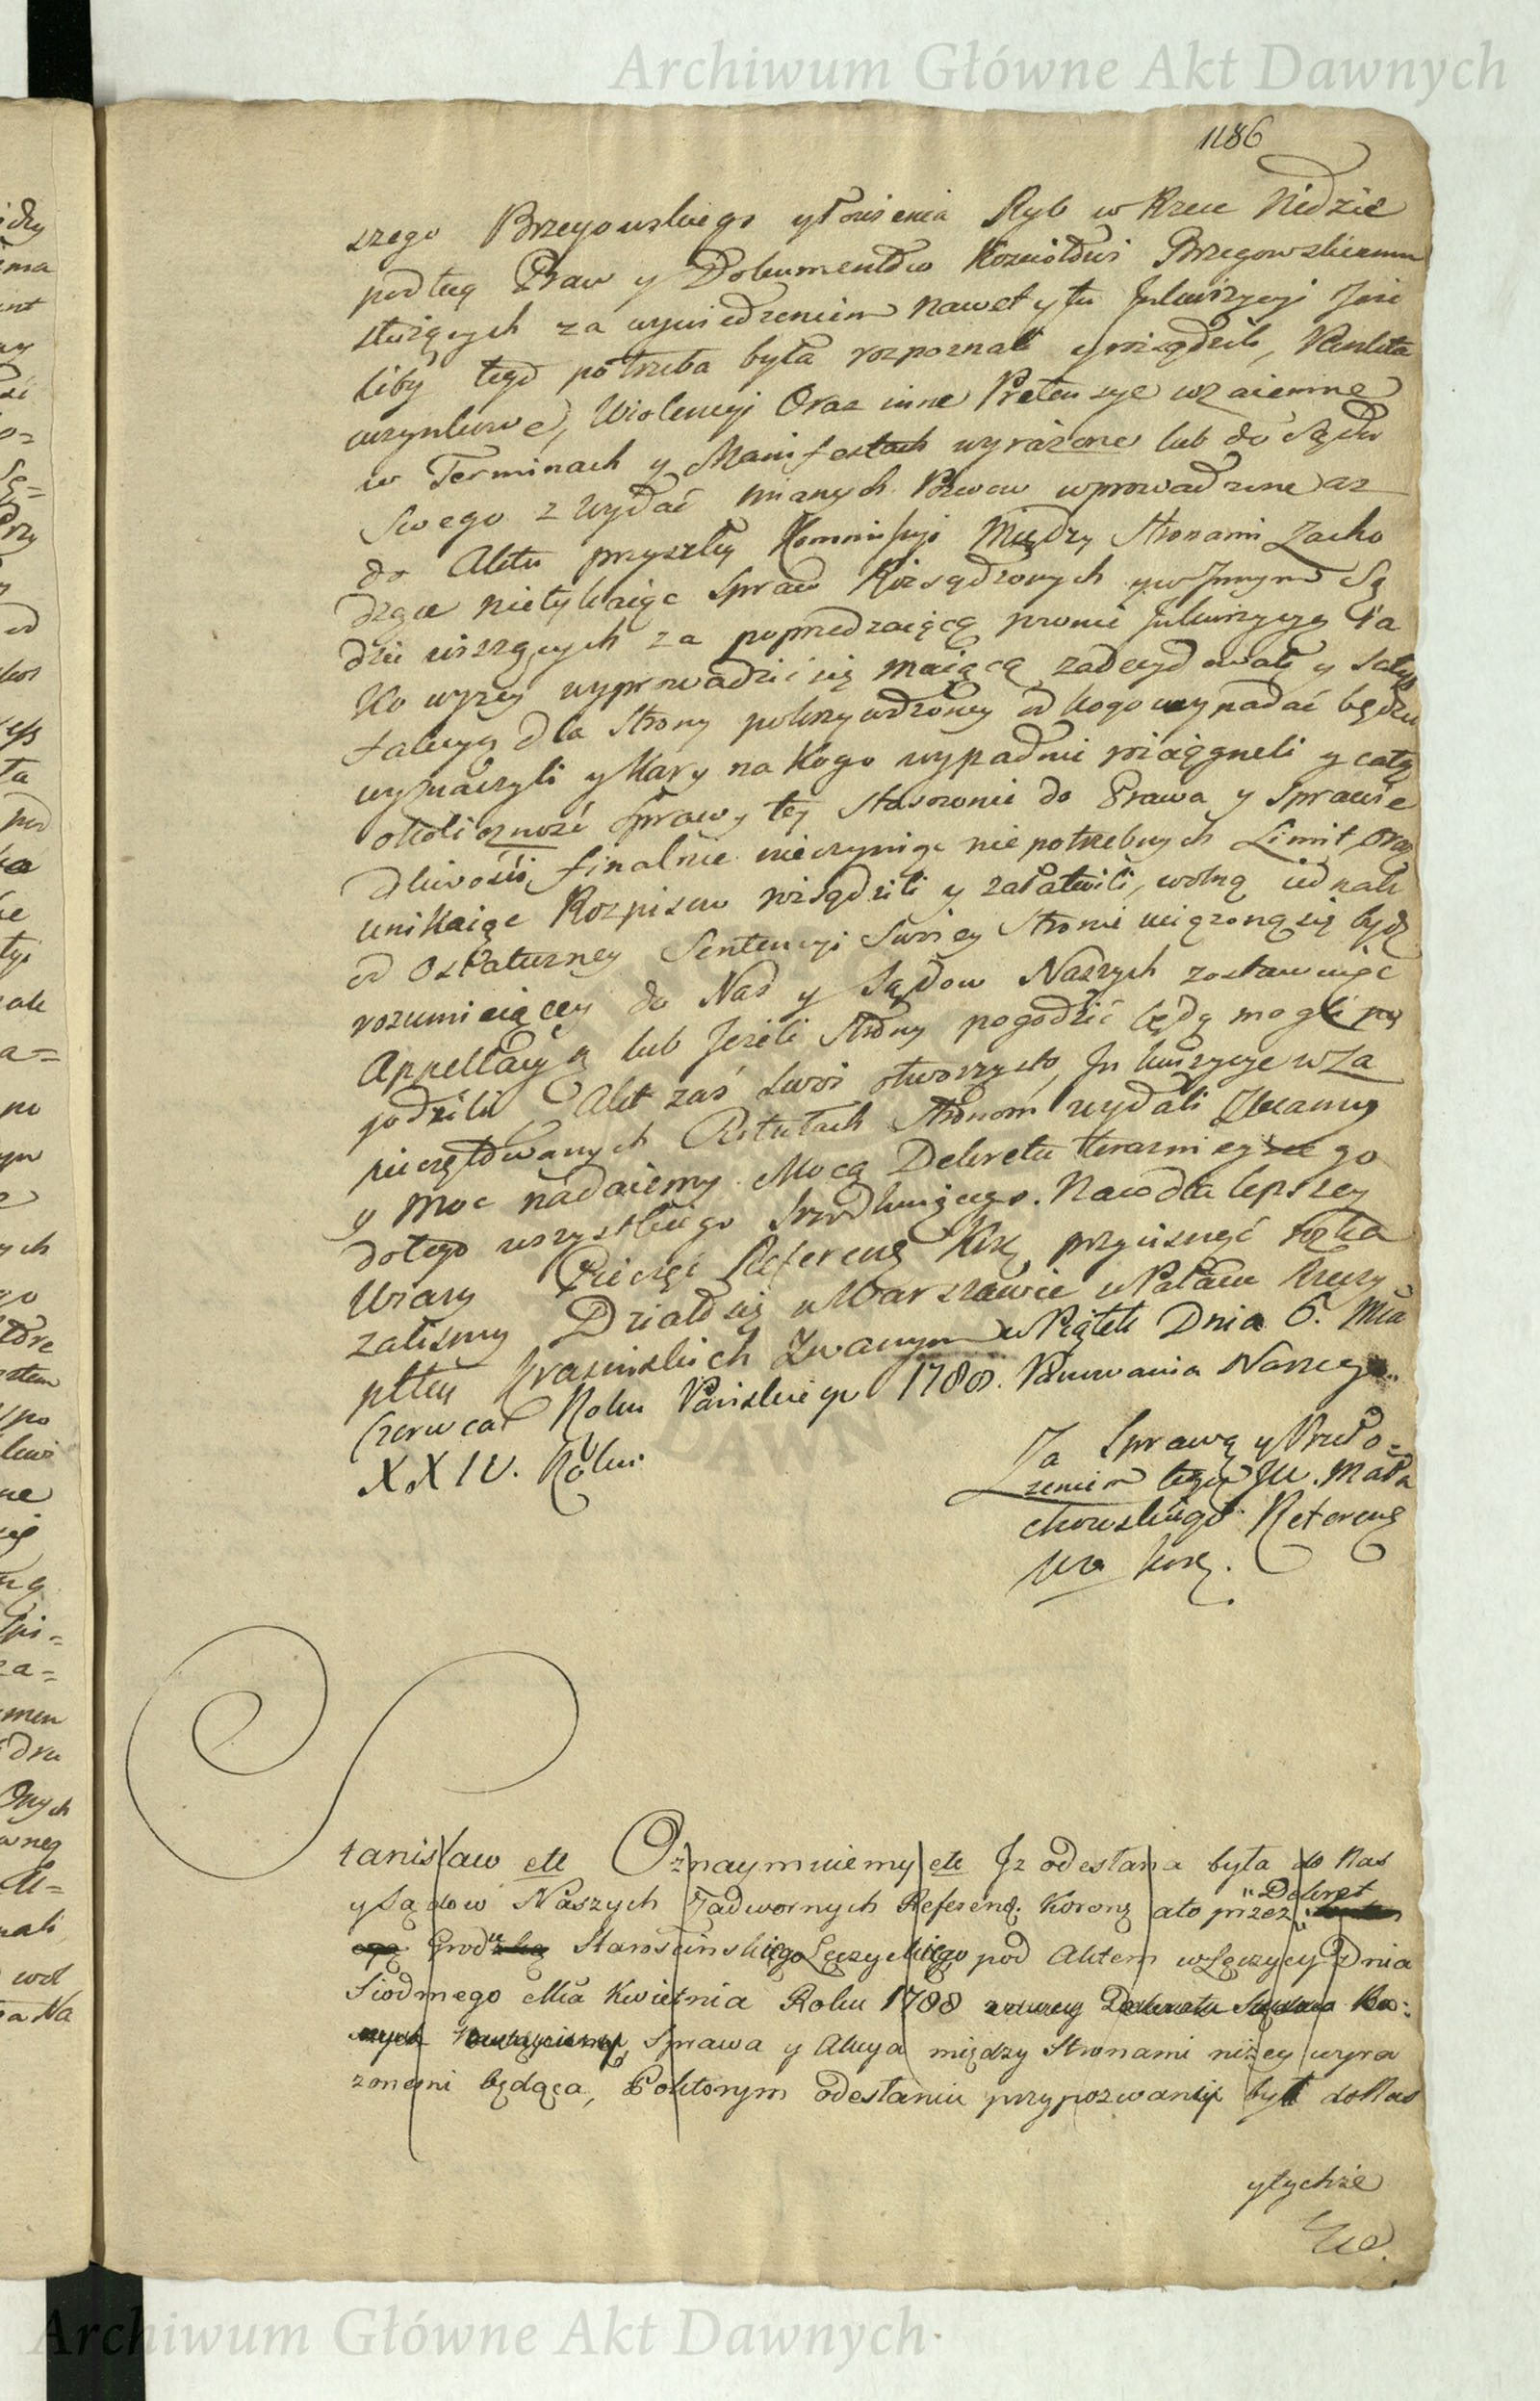 Archiwum Główne Akt Dawnych
1186
szego Brzegowskiego y łowienia Ryb w Rzece Nidzie
podług Praw y Dokumentów Koziołkowi Brzegowskiemu
służących za wywiedzeniem nawet y tu Inkwizycyi Jeże
liby tego potrzeba była rozpoznali y rozsądzili,
czynkowe, Wiolencyi Oraz inne Pretensye wzaiemne
w Terminach y Manifestach wyrażone lub do Sądu
Swego z wydać mianych Pozwow wprowadzone az
do Aktu przyszłey Kommissyi Między Stronami Zacho
dzące nietykaiąc Spraw Rozsądzonych y w Innym Są
dzie wiszących za poprzedzaiącą rownie Inkwizycyą Ja
ko wyzey wyprowadzić się maiącą zadecydowali y Satys
fakcyą dla Strony pokrzywdzoney od kogo wypadać będzie
wyznaczyli y Kary na Kogo wypadnie rozciągneli y całą
okoliczność Sprawy tey Stosownie do Prawa y Sprawie
dliwości, finalnie nieczyniąc niepotrzebnych Limit, oraz
unikaiąc Rozpisow rozsądzili y załatwili, wolną iednak
od Ostateczney Sentencyi Swoiey Stronie uciążoną się bydź
rozumieiącey do Nas y Sądow Naszych zostawuiąc
Appellacyą lub Jeżeli Strony pogodzić będą mogli po
godzili Akt zaś Swoi otworzysto, Inkwizycye w Za
pieczętowanych Rotułach Stronom wydali Zlecamy
y Moc nadaiemy Mocą Dekretu teraznieyszego
dotego wszystkiego Srzodkuiącego. Na co dla lepszey
Wiary Pieczęć Referend. Kor. przycisnąć roska
zaliśmy Działo się w Warszawie w Pałacu Rzeczy
pltey Krasinskich Zwanym w Piątek Dnia 6. Mca
Czerwca Roku Pańskiego 1788. Panowania Naszego
XXIV. Roku.
Za Sprawą y Przeło=
żeniem tegoż JW. Mała
chowskiego Referend
Wo Kor.
Stanisław etc Oznaymuiemy etc Iz odesłana była do Nas
y Sądow Naszych Zadwornych Referend. Koronn. a to przez Dekret
Grodzki Starościnskiego Łęczyckiego pod Aktem w Łęczycy Dnia
Siodmego Mca Kwietnia Roku 1788
Sprawa y Akcya między Stronami niżey wyra
żonemi będąca, Po ktorym odesłaniu przypozwany był do Nas
y tychże
Archiwum Główne Akt Dawnych